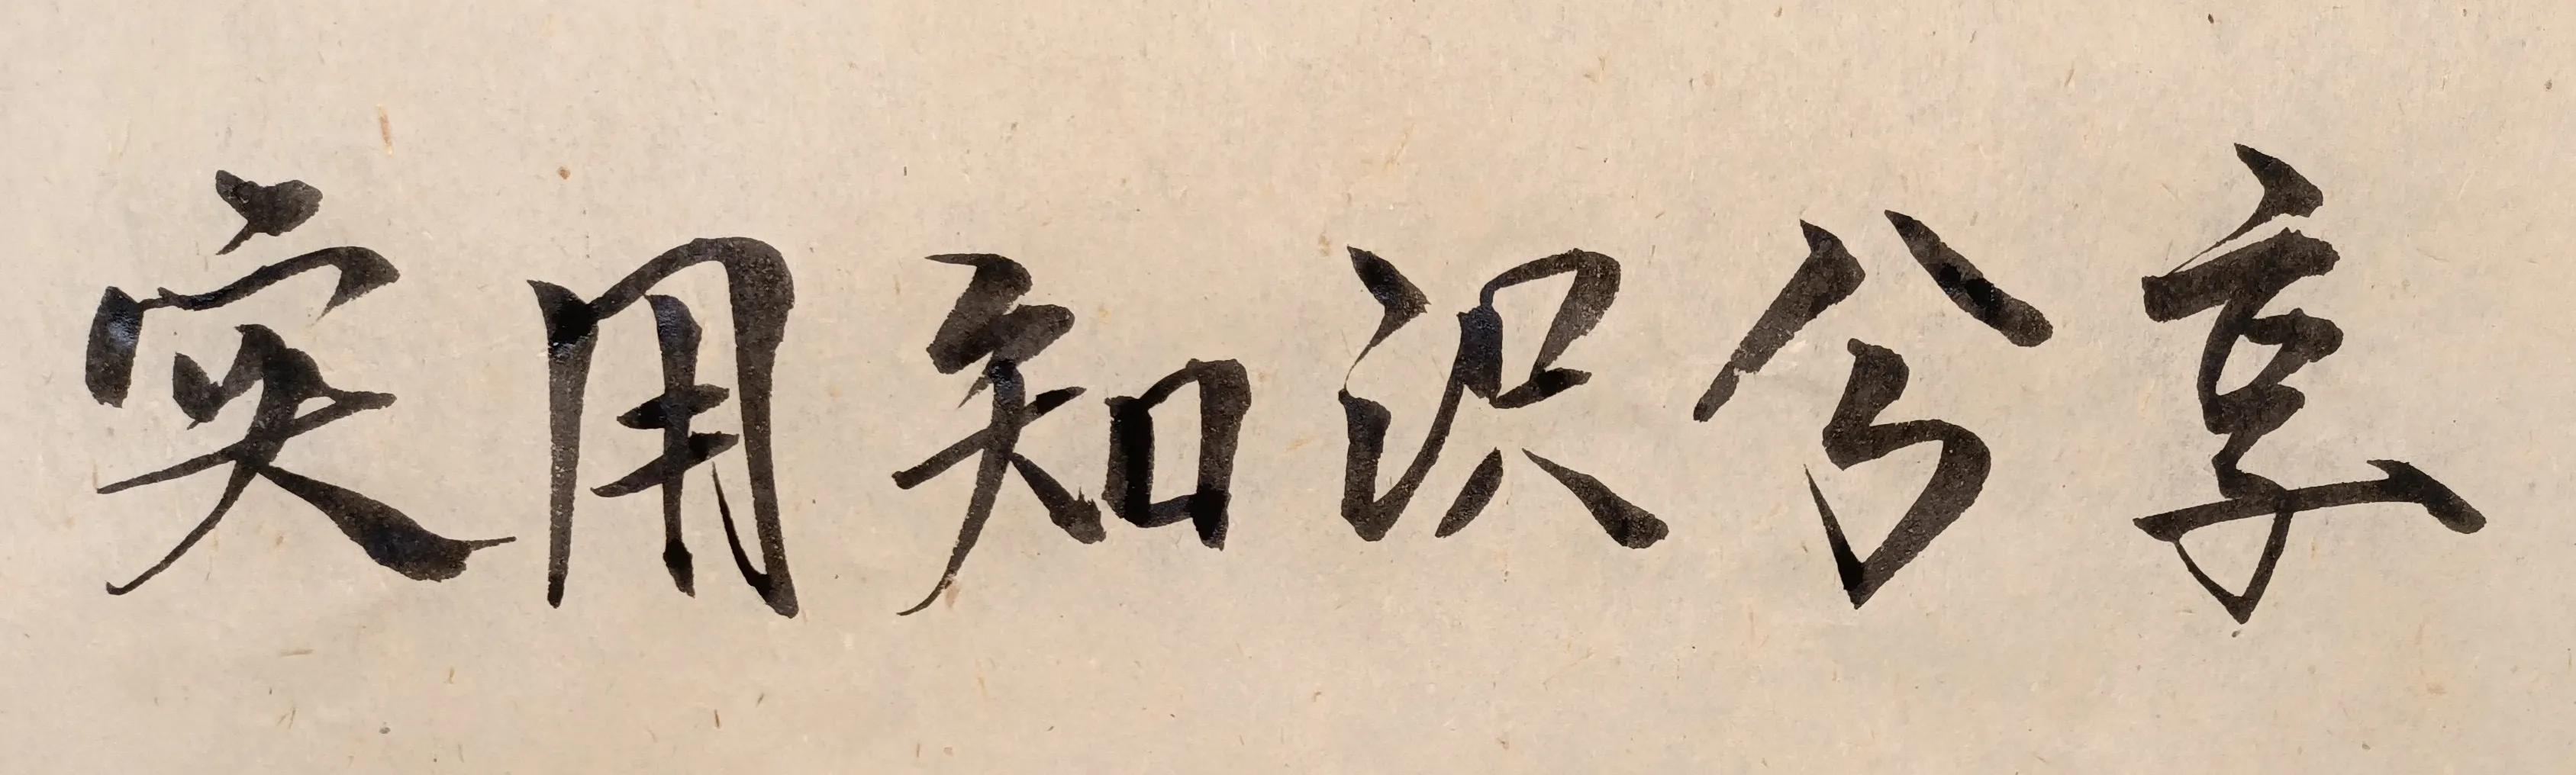 实用知识分享